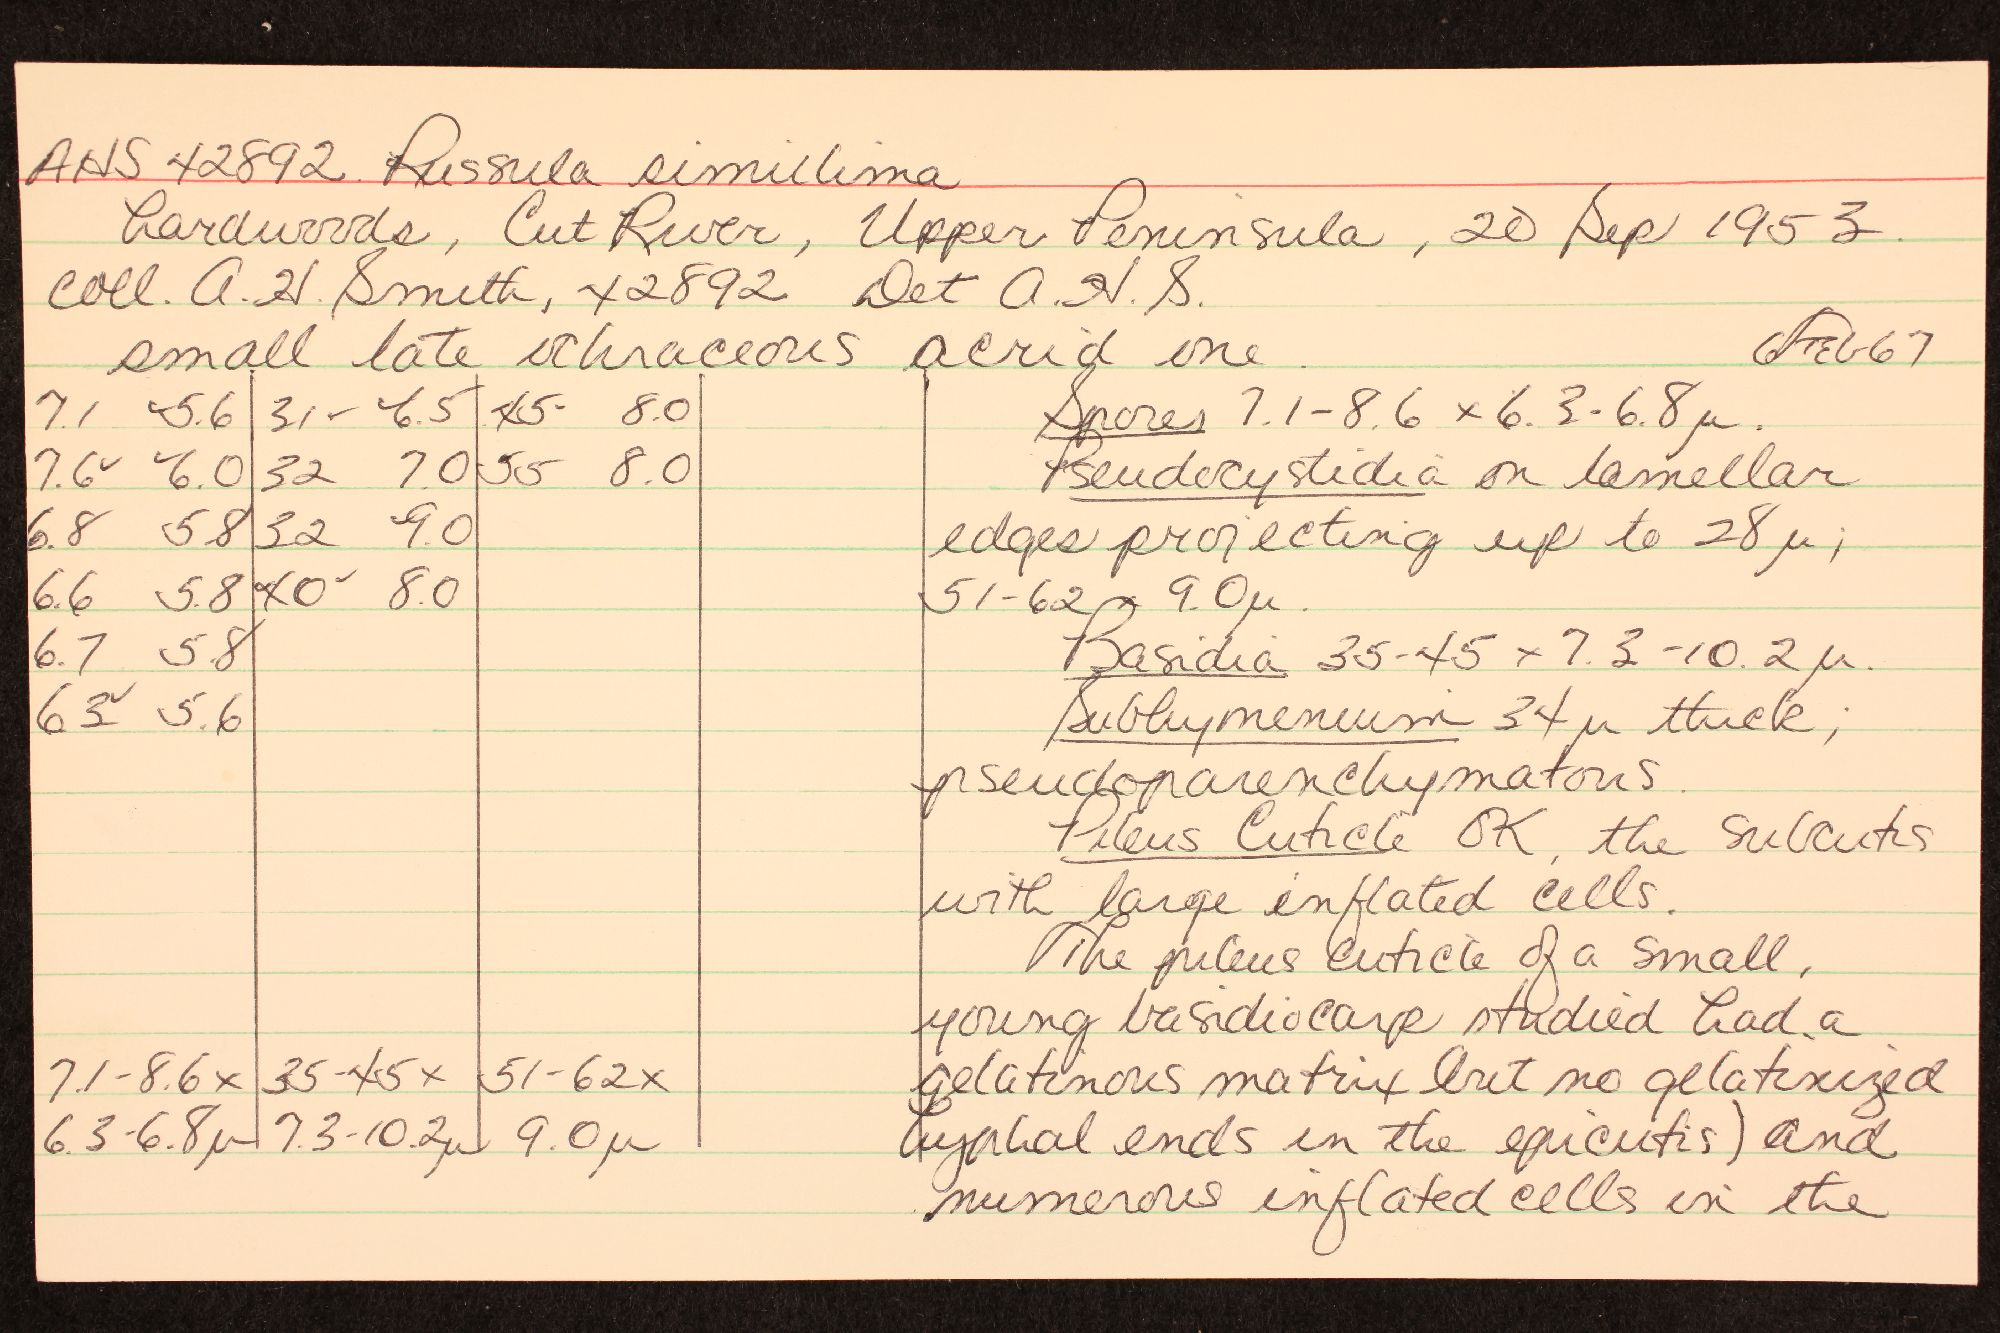 AHS 42892. Russula simillima
hardwoods, Cut River, Upper Peninsula, 20 Sep 1953.
coll. A.H. Smith, 42892 Det A.H.S.
small late ochraceous acrid one.
6 Feb 67
7.1 5.6 31 6.5 45 8.0
7.6 6.0 32 7.0 55 8.0
6.8 5.8 32 9.0
6.6 5.8 40 8.0
6.7 5.8
6.3 5.6
7.1-8.6 x 35-45 x 51-62 x
6.3-6.8 µ 7.3-10.2 µ 9.0 µ
Spores 7.1-8.6 x 6.3-6.8 µ.
Pseudocystidia on lamellar
edges projecting up to 28 µ;
51-62 x 9.0 µ.
Basidia 35-45 x 7.3-10.2 µ.
Subhymenium 34 µ thick;
pseudoparenchymatous.
Pileus Cuticle OK, the subcutis
with large inflated cells.
The pileus cuticle of a small,
young basidiocarp studied had a
gelatinous matrix but no gelatinized
hyphal ends in the epicutis) and
numerous inflated cells in the